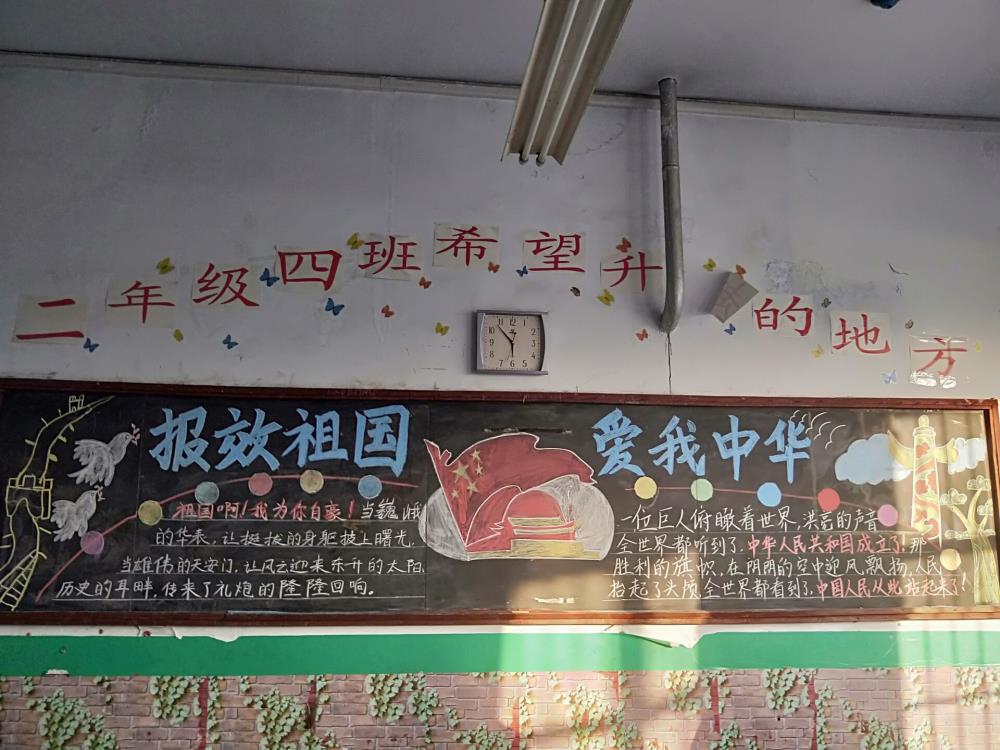 二年级四班希望升
的地方
12
11
10
9
8
7
6
5
4
3
2
1
报效祖国
祖国啊!我为你自豪!当巍峨
的华表,让挺拔的身躯披上曙光,
当雄伟的天安门,让风云迎来东升的太阳,
历史的耳畔,传来了礼炮的隆隆回响。
爱我中华
一位巨人俯瞰着世界,洪亮的声音
全世界都听到了,中华人民共和国成立了!那
胜利的旗帜,在阴阴的空中迎风飘扬,人民
抬起了头颅全世界都看到了,中国人民从此站起来了!